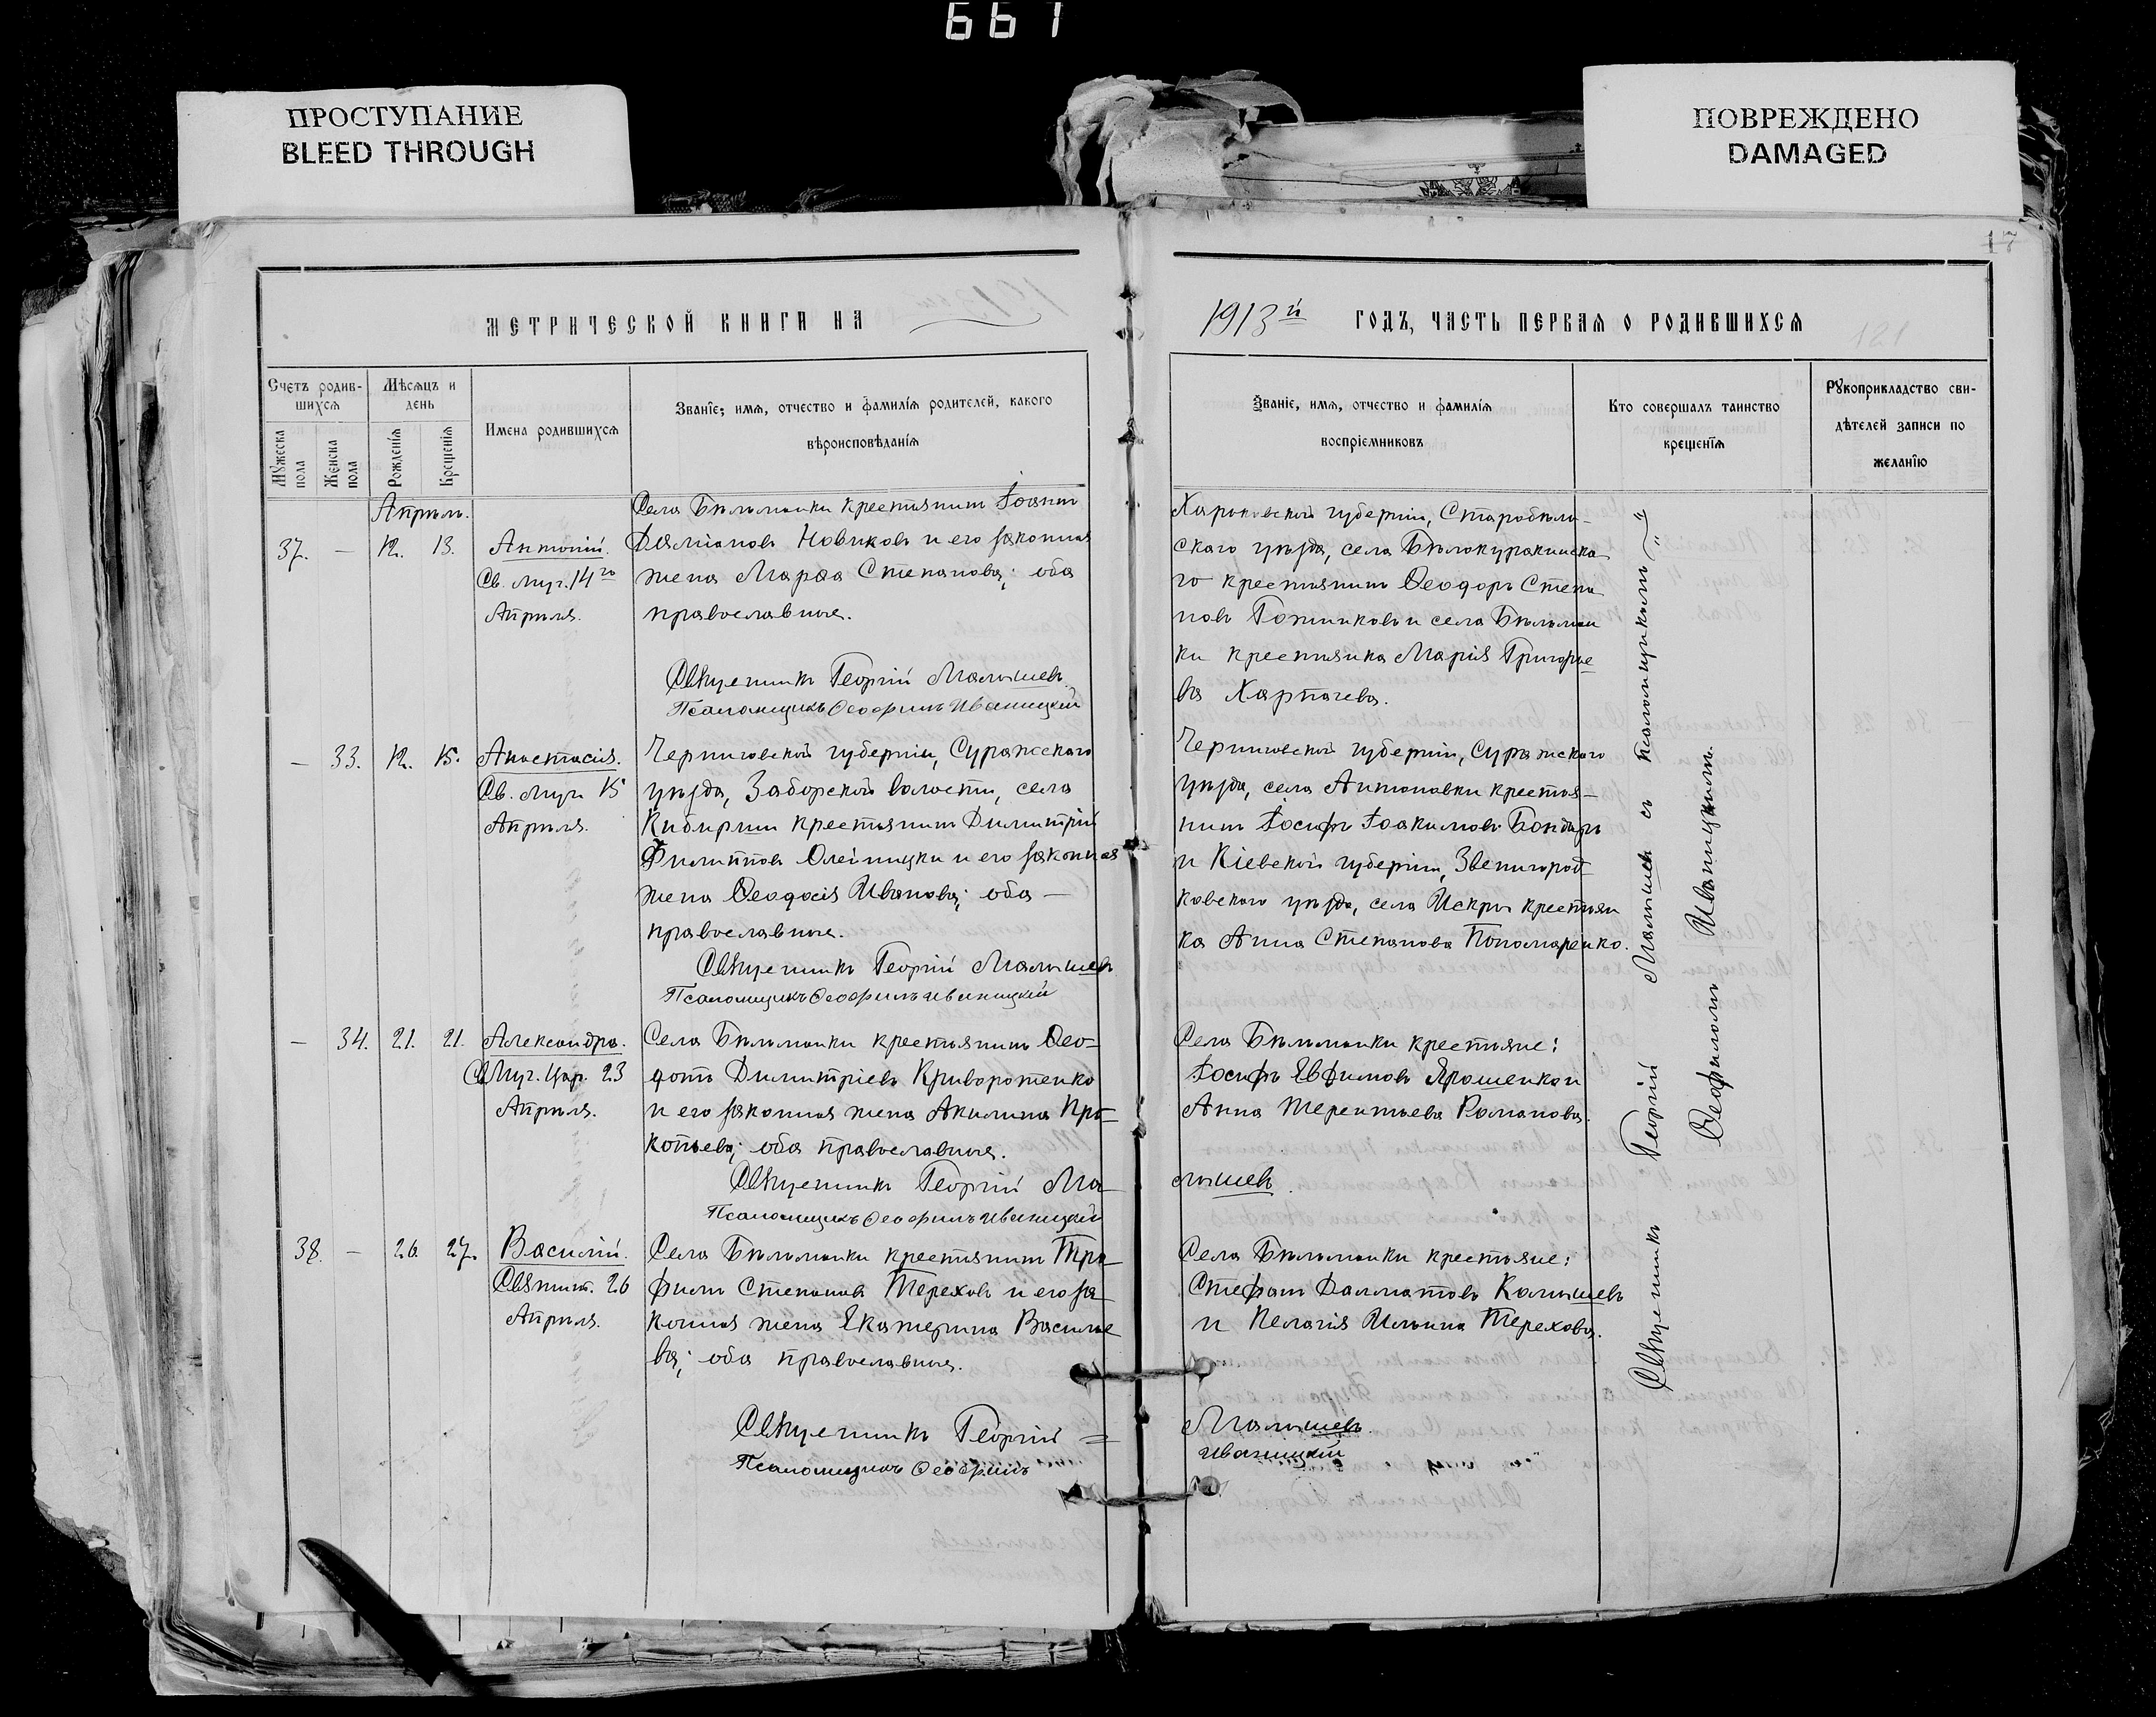 661
ПРОСТУПАНИЕ
BLEED THROUGH
ПОВРЕЖДЕНО
DAMAGED
17
МЕТРИЧЕСКОЙ КНИГИ НА
1913й ГОДЪ, ЧАСТЬ ПЕРВАЯ О РОДИВШИХСЯ
Счетъ родив-
шихся
Мѣсяцъ и
день
Мужеска
пола
Женска
пола
Рожденія
Крещенія
Имена родившихся
Званіе, имя, отчество и фамилія родителей, какого
вѣроисповѣданія
Званіе, имя, отчество и фамилія
воспріемниковъ
Кто совершалъ таинство
крещенія
Рукоприкладство сви-
дѣтелей записи по
желанію
Апрѣль.
37. — 12. 13.
Антоній.
Св. муч. 14го
Апрѣля.
Села Бѣльманки крестьянинъ Іоаннъ
Даміановъ Новиковъ и его законная
жена Марѳа Степанова; оба
православные.
Священникъ Георгій Малышевъ
Псаломщикъ Ѳеофилъ Иваницкій
Харьковской губерніи, Старобѣль-
скаго уѣзда, села Бѣлокуракинска-
го крестьянинъ Ѳеодоръ Степа
новъ Гожниковъ и села Бѣльман
ки крестьянка Марія Григорье
ва Харпачева.
— 33. 12. 15.
Анастасія.
Св. муч. 15
Апрѣля.
Черниговской губерніи, Суражскаго
уѣзда, Заборской волости, села
Крестьянинъ Димитрій
Филипповъ Олейницки и его законная
жена Ѳеодосія Иванова; оба —
православные.
Священникъ Георгій Малышевъ
Псаломщикъ Ѳеофилъ Иваницкій
Черниговской губерніи, Суражскаго
уѣзда, села Антоновки крестья-
нинъ Іосифъ Іоакимовъ Бондарь
и Кіевской губерніи, Звенигород
ковскаго уѣзда, села Искры крестьян
ка Анна Степанова Пономаренко.
— 34. 21. 21.
Александра.
Св. Муч. Цар. 23
Апрѣля.
Села Бѣльманки крестьянинъ Ѳео-
дотъ Димитріевъ Криворотенко
и его законная жена Акилина Про-
копьева; оба православные.
Священникъ Георгій Ма-
Псаломщикъ Ѳеофилъ Иваницкій
Села Бѣльманки крестьяне:
Іосифъ Евфимовъ Ярошенко и
Анна Терентьева Романова.
лышевъ
38. — 26. 27.
Василій.
Святит. 26
Апрѣля.
Села Бѣльманки крестьянинъ Тро-
фимъ Степановъ Тереховъ и его за
конная жена Екатерина Василье
ва; оба православные.
Священникъ Георгій =
Псаломщикъ Ѳеофилъ
Села Бѣльманки крестьяне:
Стефанъ Далматовъ Калышевъ
и Пелагія Ильина Терехова.
Малышевъ
Иваницкій
Священникъ Георгій Малышевъ съ псаломщикомъ
Ѳеофиломъ Иваницкимъ.